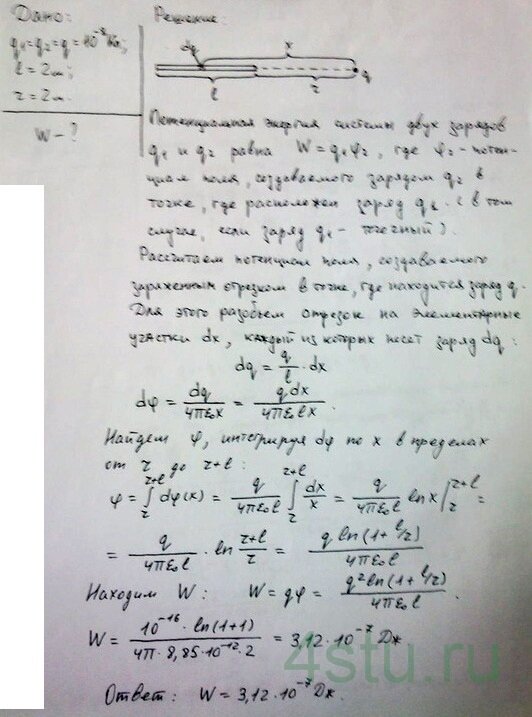 Дано:
Решение:
q₁=q₂=q=10⁻⁸Кл;
l = 2м;
r = 2м.
W - ?
dq x q
l r
Потенциальная энергия системы двух зарядов
q₁ и q₂ равна W = q₁φ₂, где φ₂ - потен-
циал поля, создаваемого зарядом q₂ в
точке, где расположен заряд q₁. (в том
случае, если заряд q₁ - точечный).
Рассчитаем потенциал поля, создаваемого
заряженным отрезком в точке, где находится заряд q.
Для этого разобьем отрезок на элементарные
участки dx, каждый из которых несет заряд dq:
dq = q/l · dx
dφ = dq/4πε₀x = qdx/4πε₀lx.
Найдем φ, интегрируя dφ по x в пределах
от r до r+l:
φ = ∫_r^{r+l} dφ(x) = q/4πε₀l ∫_r^{r+l} dx/x = q/4πε₀l ln x |_r^{r+l} =
= q/4πε₀l · ln (r+l)/r = q ln(1+l/r)/4πε₀l
Находим W: W = qφ = q² ln(1+l/r)/4πε₀l.
W = 10⁻¹⁶ · ln(1+1)/4π · 8,85·10⁻¹² · 2 = 3,12·10⁻⁷ Дж
Ответ: W = 3,12·10⁻⁷ Дж.
4stu.ru